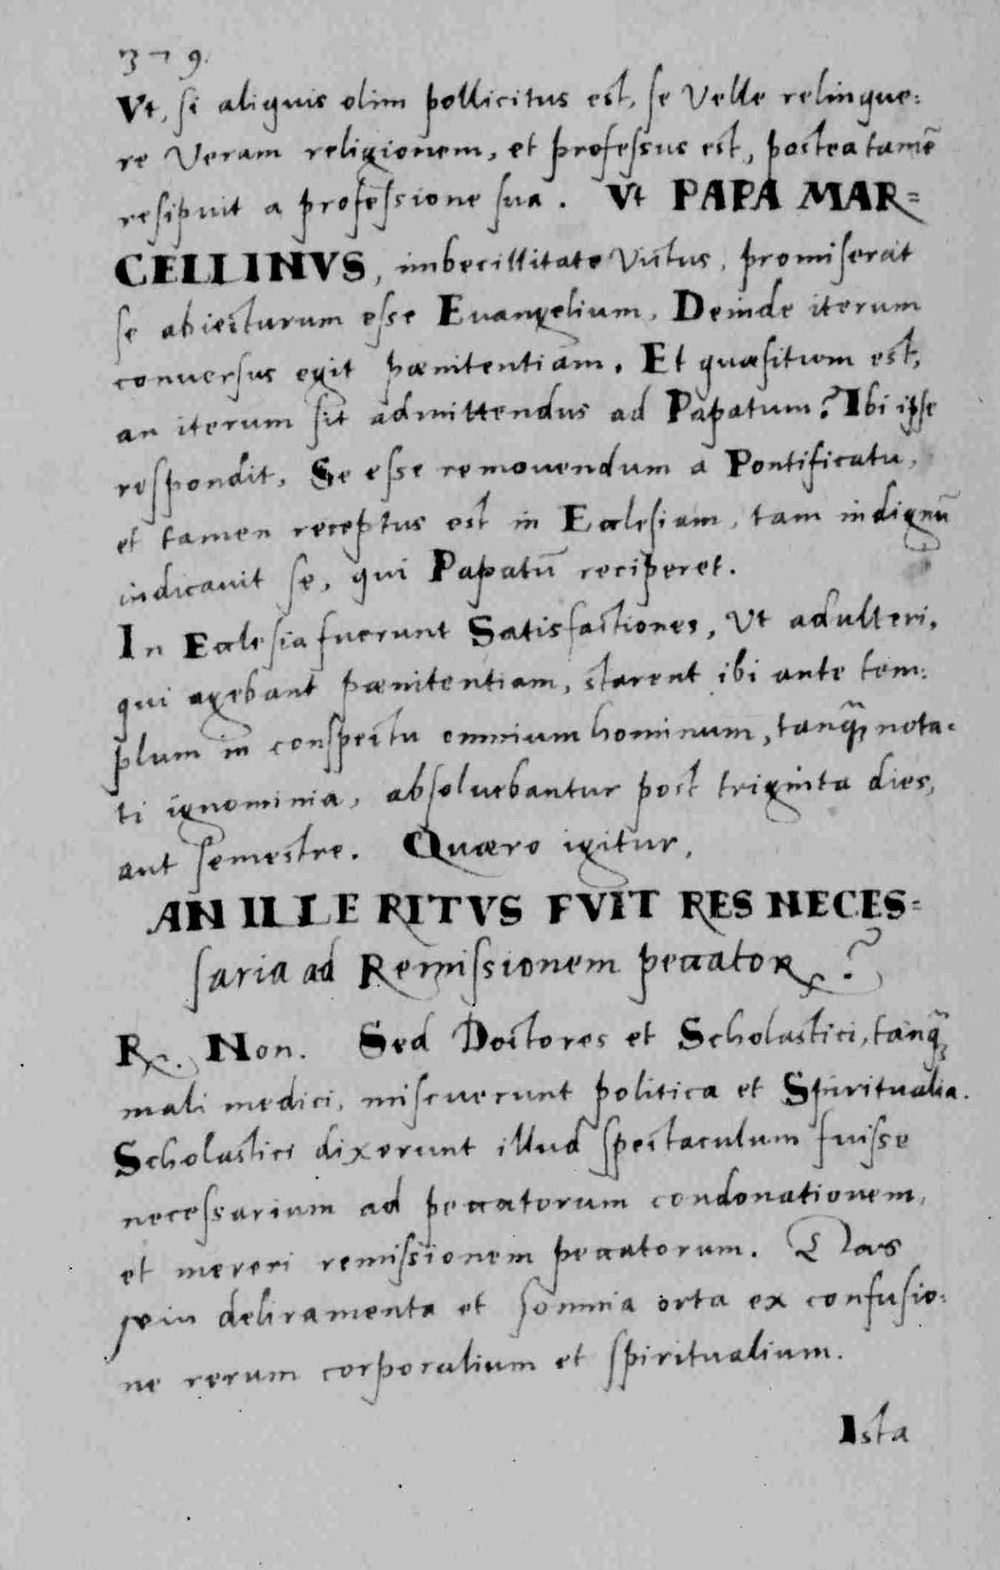 379.
Vt, si aliquis olim pollicitus est, se velle relinque:
re veram religionem, et professus est, postea tamē
resipuit a professione sua. Vt PAPA MAR=
CELLINVS, imbecillitate victus, promiserat
se abiecturum esse Euangelium, Deinde iterum
conuersus egit pænitentiam. Et quæsitum est,
an iterum sit admittendus ad Papatum? Ibi ipse
respondit, Se esse remouendum a Pontificatu,
et tamen receptus est in Ecclesiam, tam indignū
indicauit se, qui Papatū reciperet.
In Ecclesia fuerunt Satisfactiones, Vt adulteri,
qui agebant pænitentiam, starent ibi ante tem:
plum in conspectu omnium hominum, tanq̄ nota-
ti ignominia, absoluebantur post triginta dies,
aut semestre. Quæro igitur,
AN ILLE RITVS FVIT RES NECES=
saria ad Remissionem peccatoꝝ?
℞. Non. Sed Doctores et Scholastici, tanq̄
mali medici, miscuerunt politica et Spiritualia.
Scholastici dixerunt illud spectaculum fuisse
necessarium ad peccatorum condonationem,
et mereri remissionem peccatorum. Das
sein deliramenta et somnia orta ex confusio:
ne rerum corporalium et spiritualium.
Ista